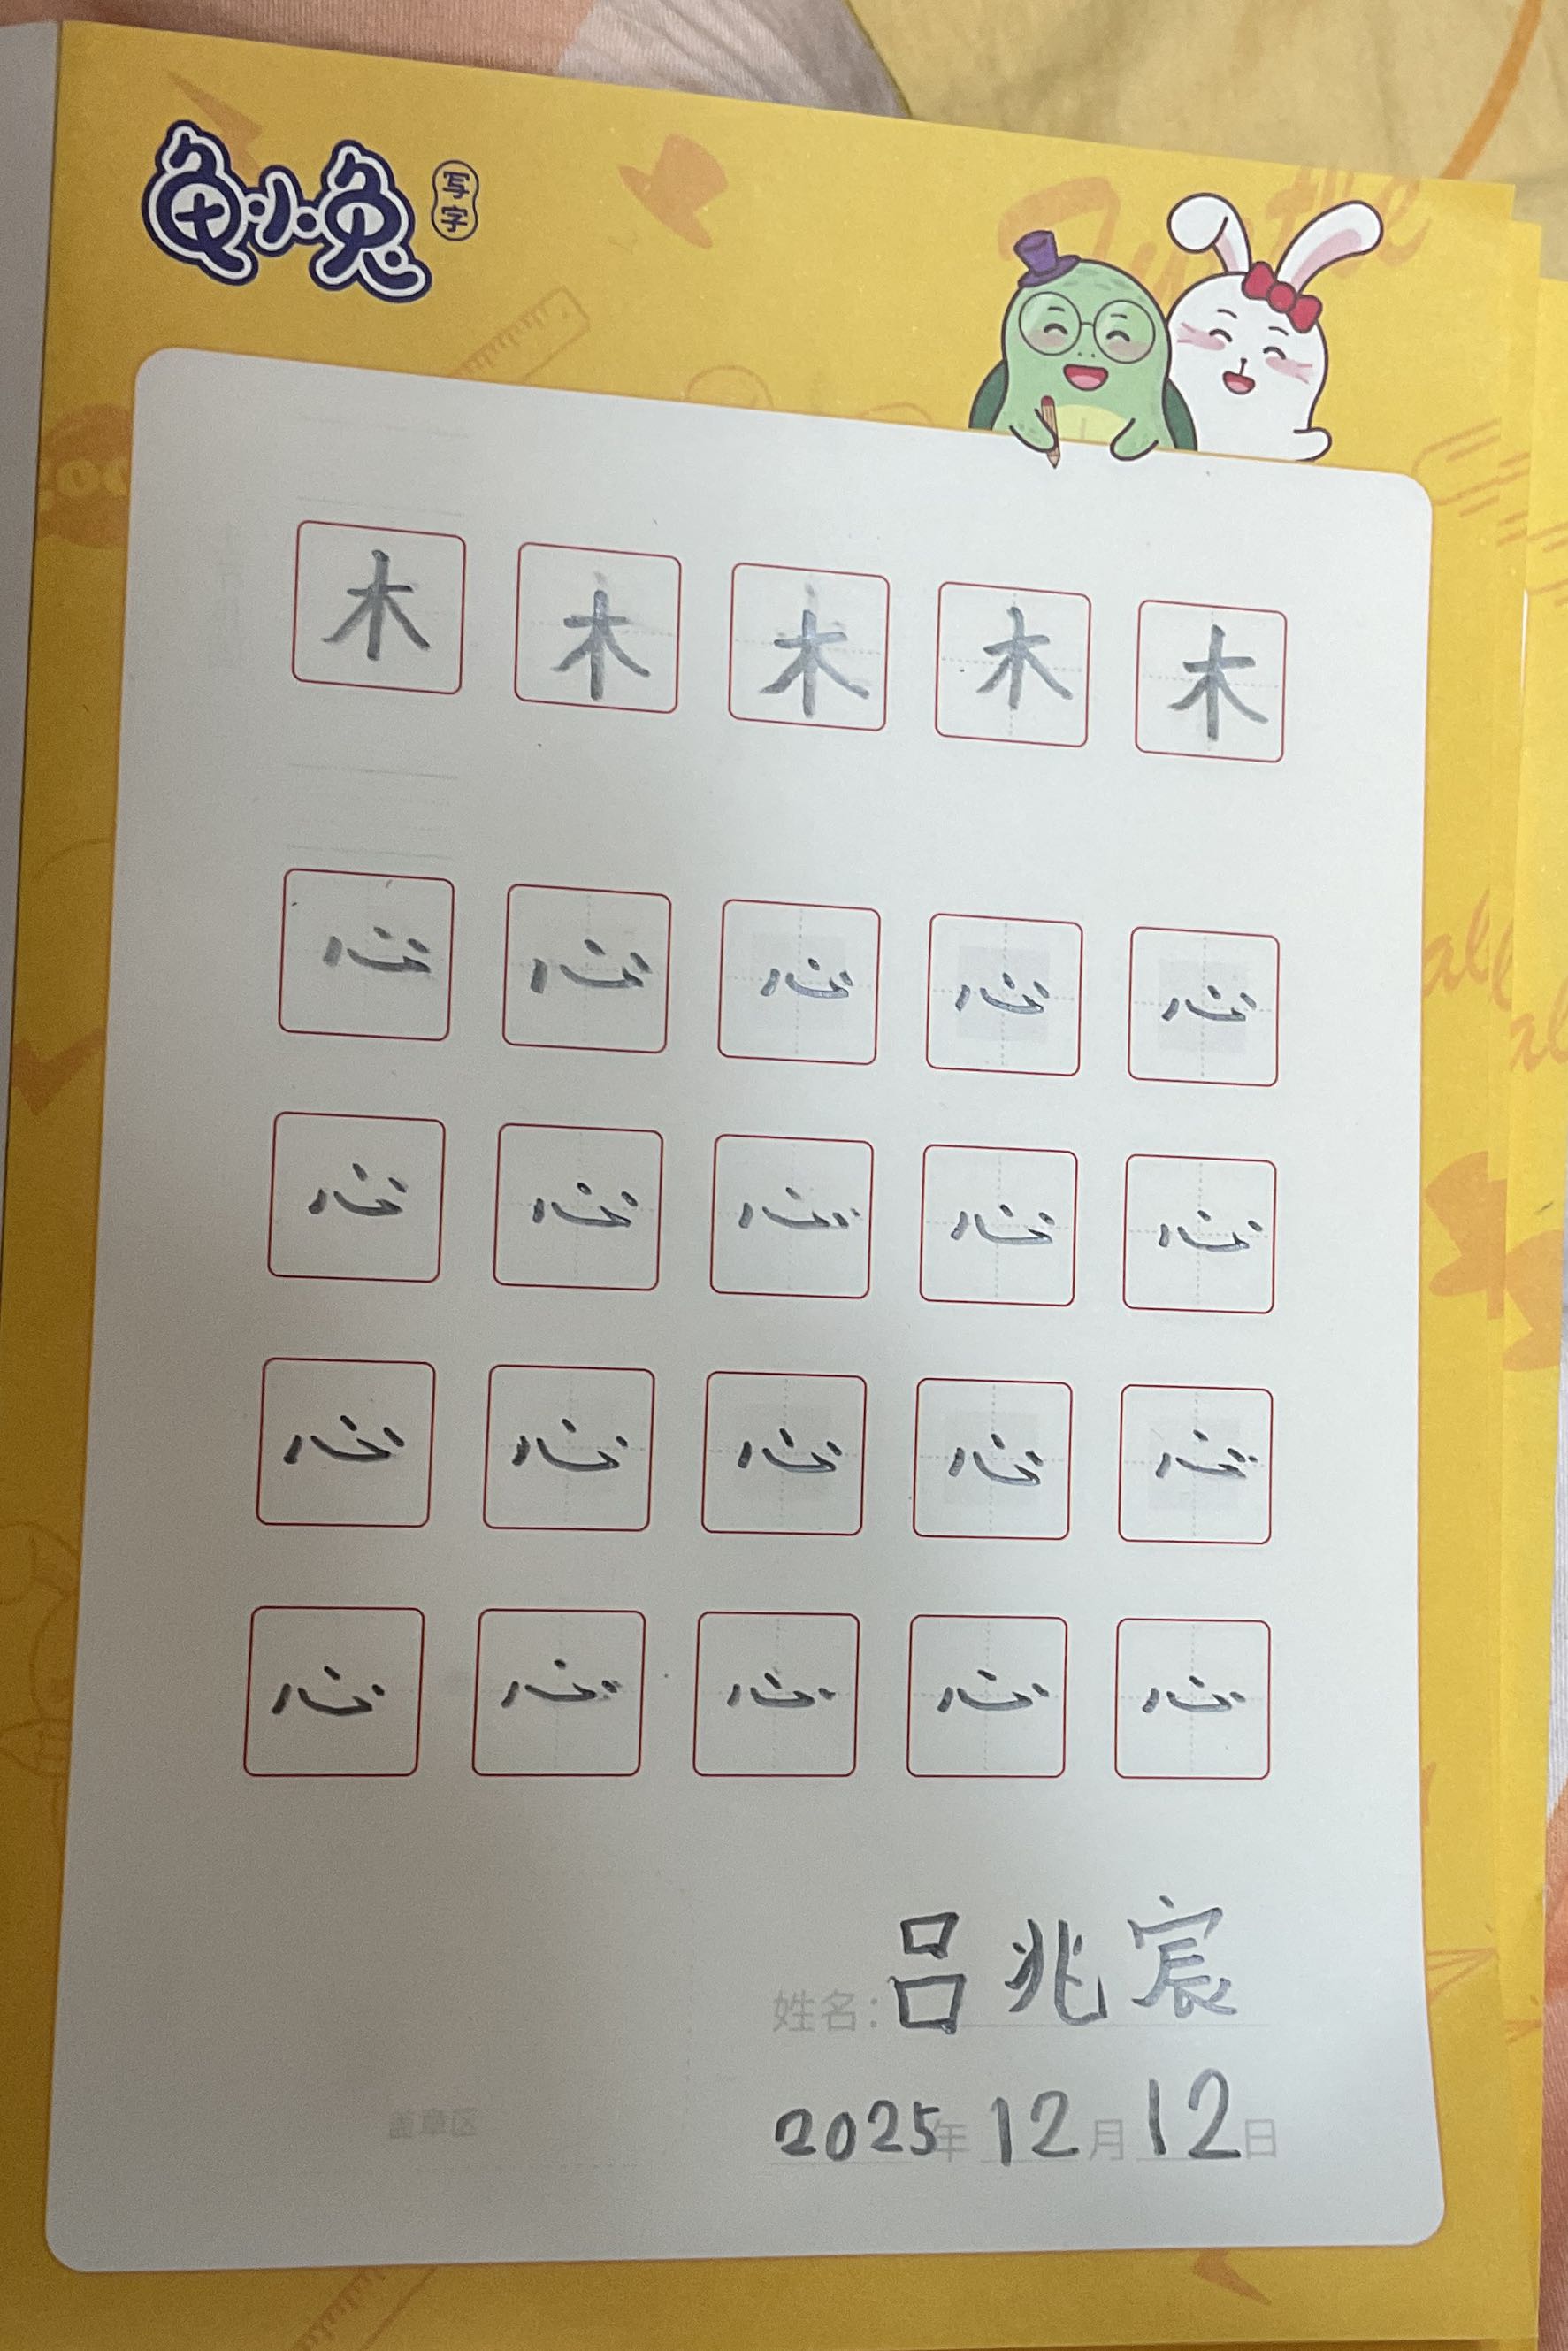 龟小兔 写字
木 木 木 木 木
心 心 心 心 心
心 心 心 心 心
心 心 心 心 心
心 心 心 心 心
姓名：吕兆宸
盖章区 2025年12月12日